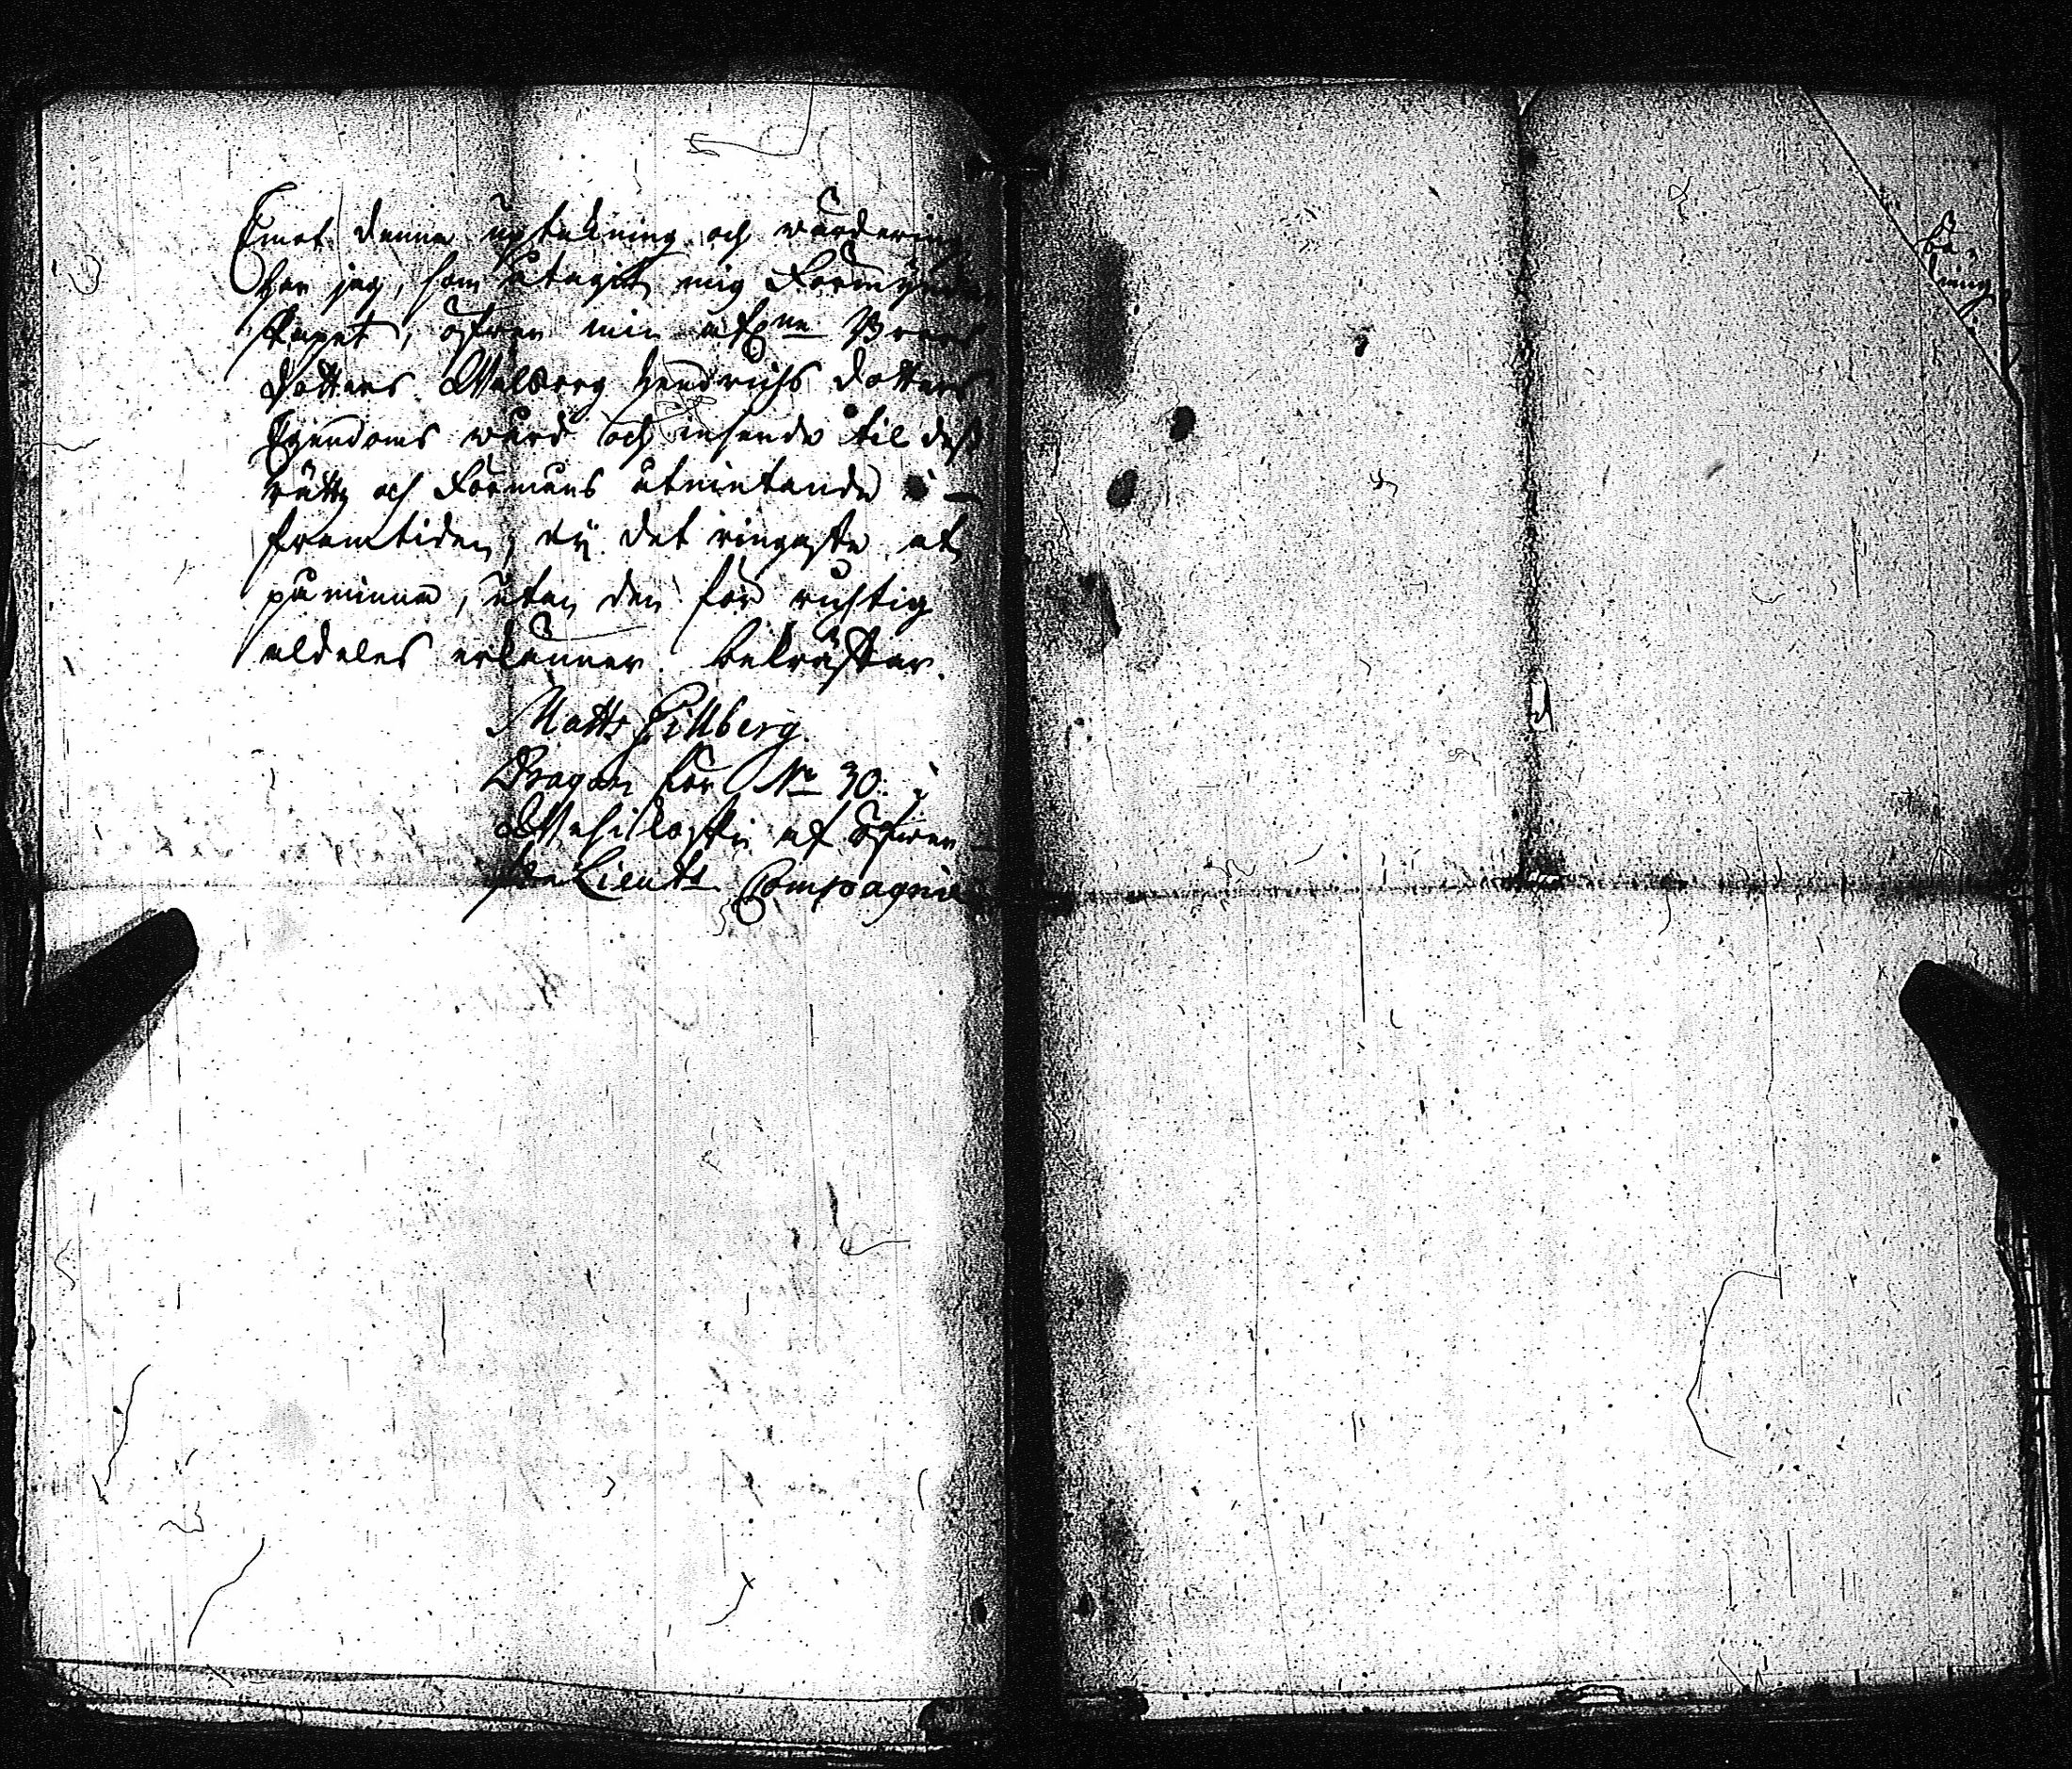 Emot denna uptekning och wärderin
har jag, som åtagit mig Förmyndar
skapet, öfwer min afl:ne Brors
Dotters Walborg Hendrichs dotters
Egendoms wård och inseende til dess
rätt och Förmåns utnjutande i
framtiden, ej det ringaste at
påminna, utan den för richtig
aldeles erkänner bekräftar.
Matts Gillberg
Dragon för No 30: i
af Öfwer
ste Lieuts Compagnie